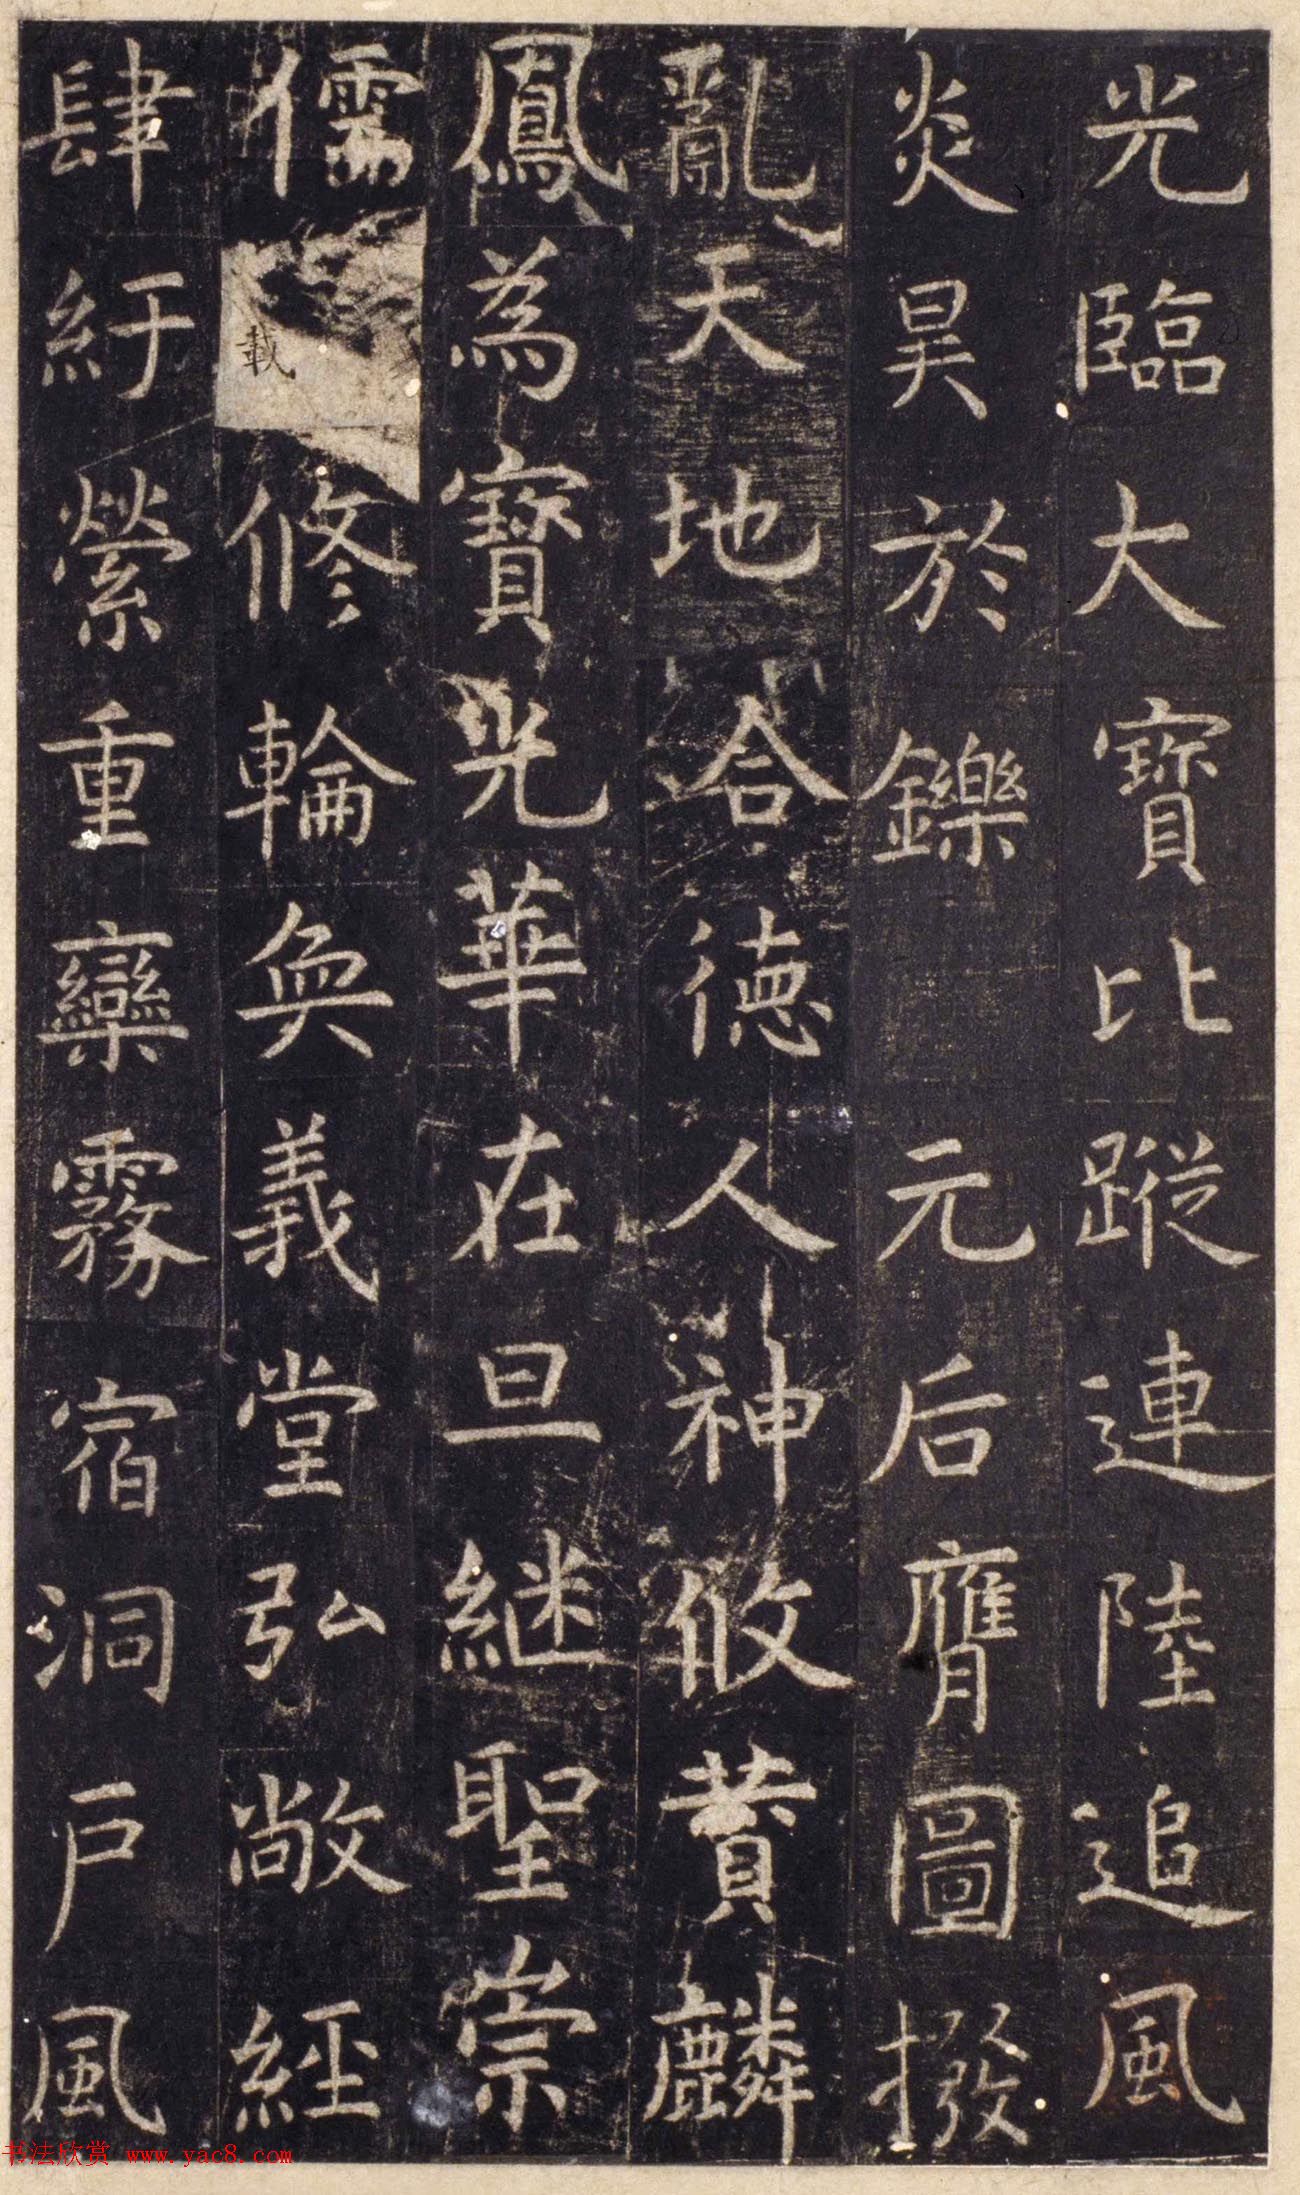 光臨大寶比蹤連陸追風
炎昊於鑠元后膺圖撥
亂天地合德人神攸贊麟
鳳為寶光華在旦継聖崇
儒載修輪奐義堂弘敞經
肆紆縈重欒霧宿洞戶風
书法欣赏 www.yac8.com